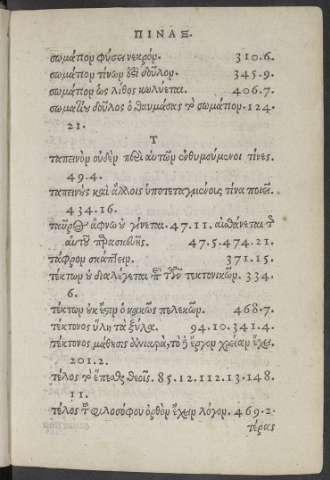 ΠΙΝΑΞ.
σωμάτιον φύσει νεκρόν. 310.6.
σωμάτιον τίνων δεῖ δοῦλον. 345.9.
σωμάτιον ὡς λίθος κωλύεται. 406.7.
σωματίου δοῦλος ὁ θαυμάσας τὸ σωμάτιον. 124.
21.
Τ
ταπεινὸν οὐδὲν περὶ αὐτῶν ἐνθυμούμενοι τίνες.
49.4.
ταπεινοὺς καὶ ἄλλοις ὑποτεταγμένους τίνα ποιεῖ.
434.16.
ταῦρος ἄφνω οὐ γίνεται. 47.11. αἰσθάνεται τῆς
αὑτοῦ παρασκευῆς. 47.5.474.21.
τάφρον σκάπτειν. 371.15.
τέκτων οὐ διαλέγεται περὶ τῶν τεκτονικῶν. 334.
6.
τέκτων οὐκ ἔστιν ὁ κακῶς πελεκῶν. 468.7.
τέκτονος ὕλη, τὰ ξύλα. 94.10.341.4.
τέκτονος μάθησις ἀνιαρὰ, τὸ δ' ἔργον χρείαν ἔχει.
201.2.
τέλος τὸ ἕπεσθαι θεοῖς. 85.12.112.13.148.
11.
τέλος τοῦ φιλοσόφου ὀρθὸν ἔχειν λόγον. 469.2.
τέρας